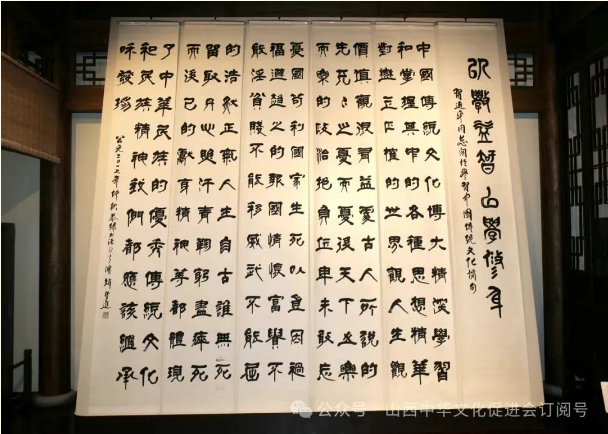 以學益智以學修身
習近平同志關於學習中國傳統文化摘句
中國傳統文化博大精深學習
和掌握其中的各種思想精華
對樹立正確的世界觀人生觀
價值觀很有益處古人所說的
先天下之憂而憂後天下之樂
而樂的政治抱負位卑未敢忘
憂國苟利國家生死以豈因禍
福避趨之的報國情懷富貴不
能淫貧賤不能移威武不能屈
的浩然正氣人生自古誰無死
留取丹心照汗青鞠躬盡瘁死
而後已的獻身精神等都體現
了中華民族的優秀傳統文化
和民族精神我們都應該繼承
咊發揚
公元二〇一七年仲秋 趙望進
公众号 山西中华文化促进会订阅号